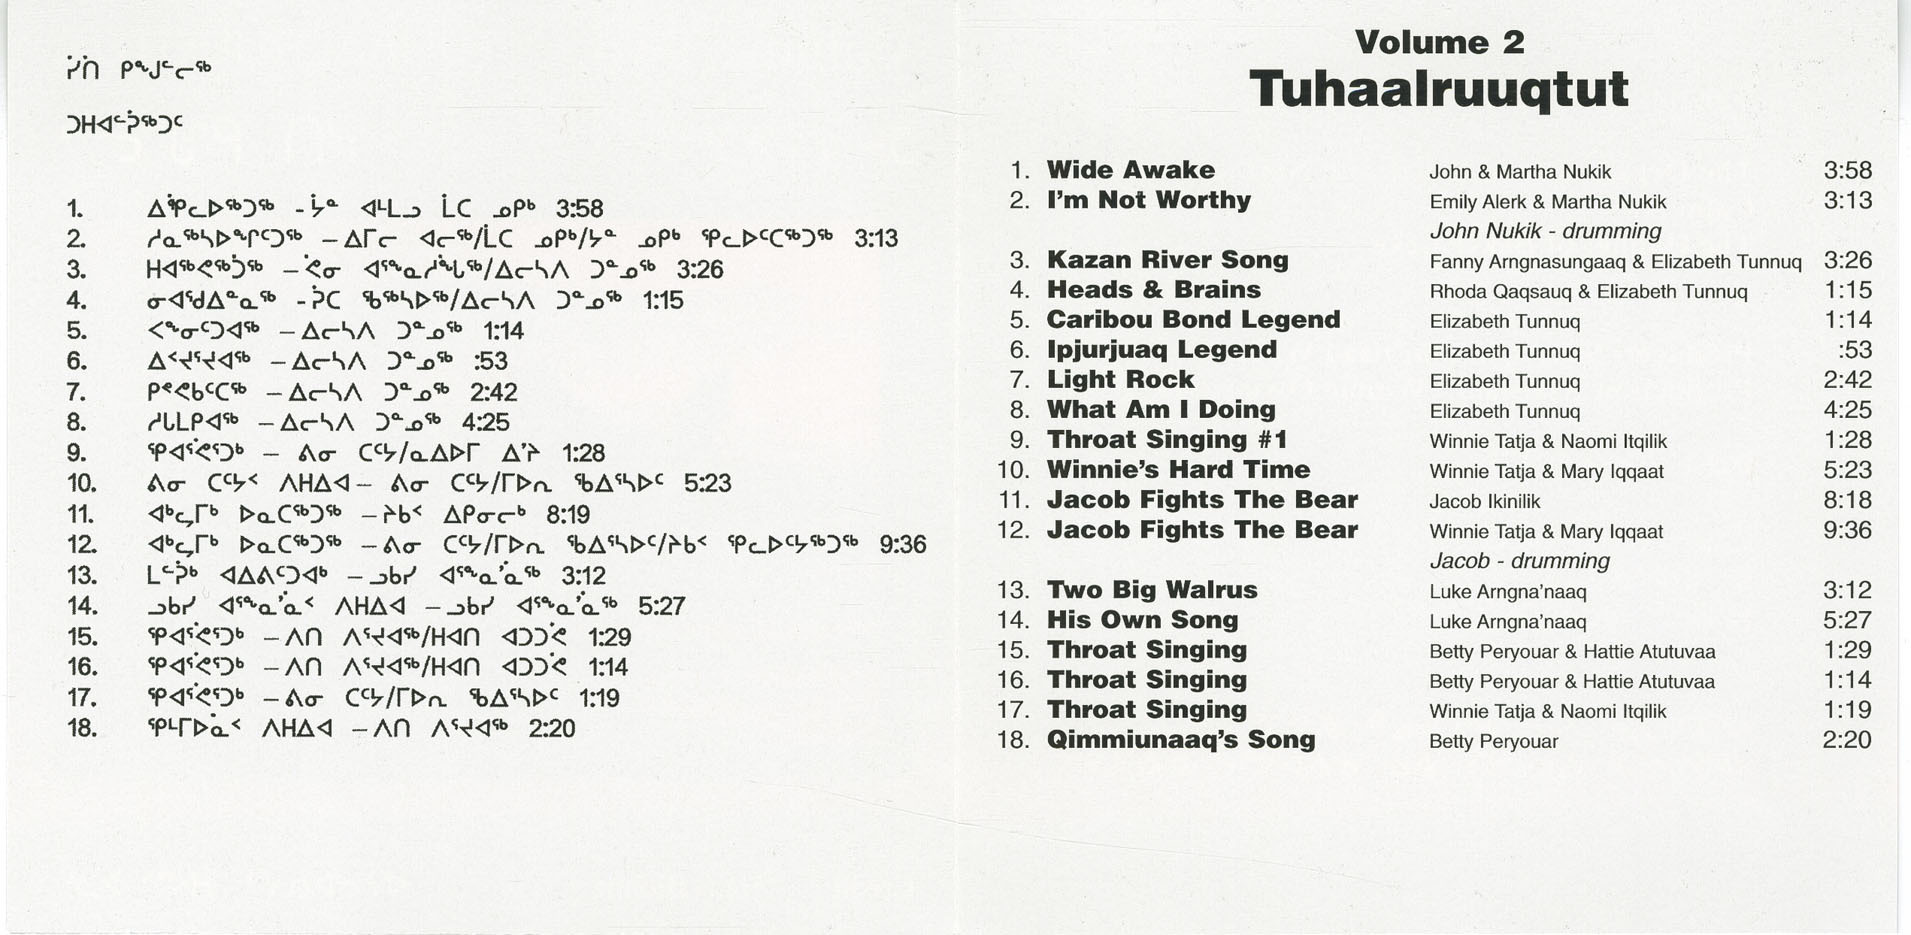 ᓰᑏ ᑭᖕᒍᓪᓕᖅ
ᑐᕼᐊᓪᕉᖅᑐᑦ
1. ᐃᖀᓚᐅᖅᑐᖅ - ᔮᓐ ᐊᒻᒪᓗ ᒫᑕ ᓄᑭᒃ 3:58
2. ᓱᓇᖅᓴᐅᖏᑦᑐᖅ – ᐃᒥᓕ ᐊᓕᖅ/ᒫᑕ ᓄᑭᒃ/ᔭᓐ ᓄᑭᒃ ᕿᓚᐅᑦᑕᖅᑐᖅ 3:13
3. ᕼᐊᖅᕙᖅᑑᖅ – ᕚᓂ ᐊᕐᖕᓇᓲᖓᖅ/ᐃᓕᓴᐱ ᑐᓐᓄᖅ 3:26
4. ᓂᐊᖁᐃᓐᓇᖅ - ᕈᑕ ᖃᖅᓴᐅᖅ/ᐃᓕᓴᐱ ᑐᓐᓄᖅ 1:15
5. ᐸᖕᓂᑦᑐᐊᖅ – ᐃᓕᓴᐱ ᑐᓐᓄᖅ 1:14
6. ᐃᑉᔪᕐᔪᐊᖅ – ᐃᓕᓴᐱ ᑐᓐᓄᖅ :53
7. ᑭᕝᕙᑲᑦᑕᖅ – ᐃᓕᓴᐱ ᑐᓐᓄᖅ 2:42
8. ᓱᒐᒪᑭᐊᖅ – ᐃᓕᓴᐱ ᑐᓐᓄᖅ 4:25
9. ᕿᐊᕐᕚᕐᑐᒃ – ᕕᓂ ᑕᑦᔭ/ᓇᐃᐅᒥ ᐃᔾᔨ 1:28
10. ᕕᓂ ᑕᑦᔭᑉ ᐱᕼᐃᐊ – ᕕᓂ ᑕᑦᔭ/ᒥᐅᕆ ᖃᐃᖅᓴᐅᑦ 5:23
11. ᐊᒃᖤᒥᒃ ᐅᓇᑕᖅᑐᖅ – ᔨᑲᑉ ᐃᑭᓂᓕᒃ 8:19
12. ᐊᒃᖤᒥᒃ ᐅᓇᑕᖅᑐᖅ – ᕕᓂ ᑕᑦᔭ/ᒥᐅᕆ ᖃᐃᖅᓴᐅᑦ/ᔨᑲᑉ ᕿᓚᐅᑦᔭᖅᑐᖅ 9:36
13. ᒪᓪᕈᒃ ᐊᐃᕕᑦᑐᐊᒃ – ᓗᑲᓯ ᐊᕐᖕᓇ'ᓈᖅ 3:12
14. ᓗᑲᓯ ᐊᕐᖕᓇ'ᓈᑉ ᐱᕼᐃᐊ – ᓗᑲᓯ ᐊᕐᖕᓇ'ᓈᖅ 5:27
15. ᕿᐊᕐᕚᕐᑐᒃ – ᐱᑎ ᐱᕐᔪᐊᖅ/ᕼᐊᑎ ᐊᑐᑐᕚ 1:29
16. ᕿᐊᕐᕚᕐᑐᒃ – ᐱᑎ ᐱᕐᔪᐊᖅ/ᕼᐊᑎ ᐊᑐᑐᕚ 1:14
17. ᕿᐊᕐᕚᕐᑐᒃ – ᕕᓂ ᑕᑦᔭ/ᒥᐅᕆ ᖃᐃᖅᓴᐅᑦ 1:19
18. ᕿᒻᒥᐅᓈᑉ ᐱᕼᐃᐊ – ᐱᑎ ᐱᕐᔪᐊᖅ 2:20
Volume 2
Tuhaalruuqtut
1. Wide Awake John & Martha Nukik 3:58
2. I'm Not Worthy Emily Alerk & Martha Nukik 3:13
John Nukik - drumming
3. Kazan River Song Fanny Arngnasungaaq & Elizabeth Tunnuq 3:26
4. Heads & Brains Rhoda Qaqsauq & Elizabeth Tunnuq 1:15
5. Caribou Bond Legend Elizabeth Tunnuq 1:14
6. Ipjurjuaq Legend Elizabeth Tunnuq :53
7. Light Rock Elizabeth Tunnuq 2:42
8. What Am I Doing Elizabeth Tunnuq 4:25
9. Throat Singing #1 Winnie Tatja & Naomi Itqilik 1:28
10. Winnie's Hard Time Winnie Tatja & Mary Iqqaat 5:23
11. Jacob Fights The Bear Jacob Ikinilik 8:18
12. Jacob Fights The Bear Winnie Tatja & Mary Iqqaat 9:36
Jacob - drumming
13. Two Big Walrus Luke Arngna'naaq 3:12
14. His Own Song Luke Arngna'naaq 5:27
15. Throat Singing Betty Peryouar & Hattie Atutuvaa 1:29
16. Throat Singing Betty Peryouar & Hattie Atutuvaa 1:14
17. Throat Singing Winnie Tatja & Naomi Itqilik 1:19
18. Qimmiunaaq's Song Betty Peryouar 2:20